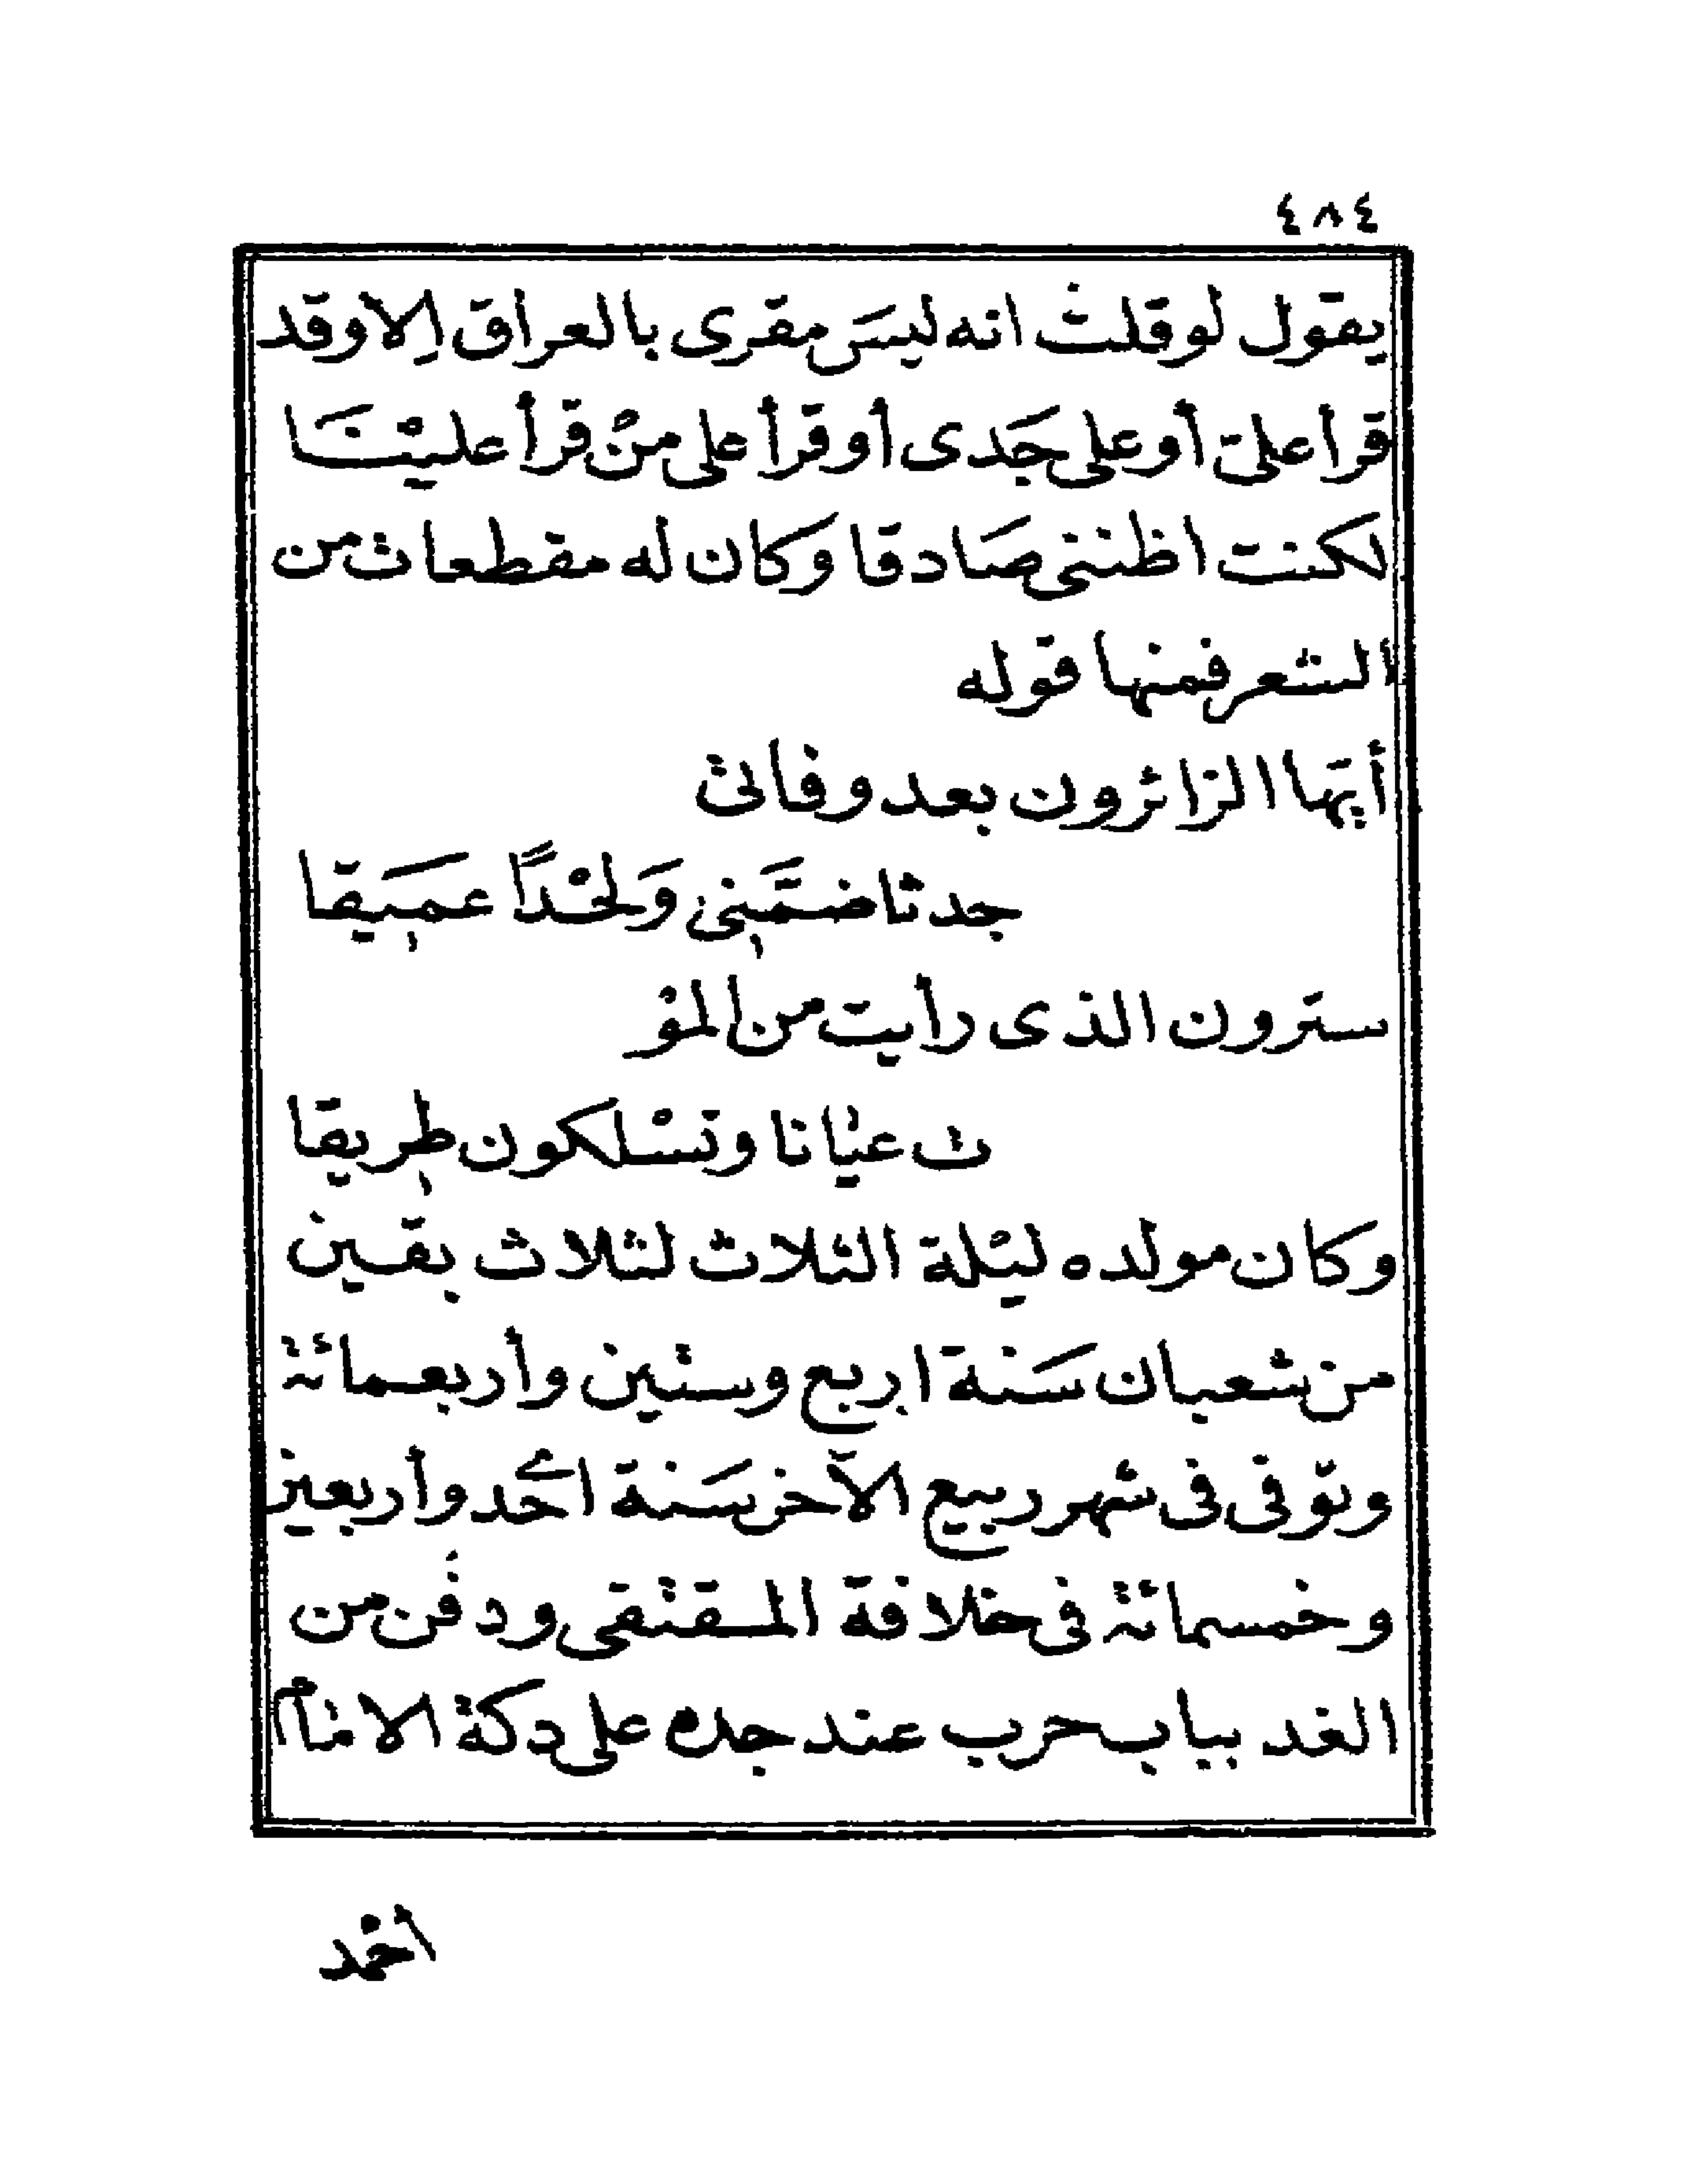 ٤٨٤
يقول لو قلت انه ليسَ مقرى بالعراق اِلا وقد
قرأ علىّ أو على جَدى أو قرأ على منْ قرأ عليْنَا
لكنت اظننى صَادقا وكان له مقطعات من
الشعر فمنها قوله
أيّها الزائرون بعد وفاتى
جدثا ضمَّنِى وَلحْدًا عمَيقا
سترون الذى رأيت من المؤ
ت عيْانا وتسْلكون طرِيقا
وكان مولده ليْلة الثلاث لثلاث بقين
من شعبان سَنة اربع وستين وأربعمائة
وتوّفى فى شهر ربيع الآخر سَنة احْد وأربعين
وخمسمائة فى خلافة المقتفى ودفن من
الغد بباب حرب عند جده على دكة الامام
احْمد